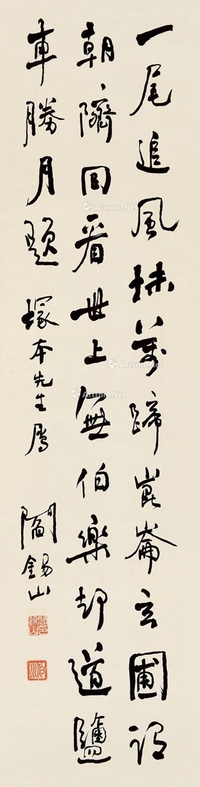 一尾追風抹萬蹄崑崙玄圃謂
朝隮回看世上無伯樂却道鹽
車勝月題 塚本先生属 閻錫山